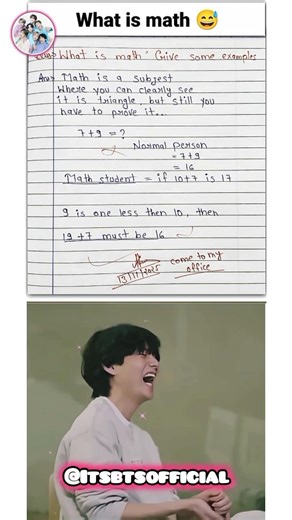 What is math 😅
Ques "What is math" Give some examples
Ans Math is a subject
Where you can clearly see
it is triangle, but still you
have to prove it...
7+9 = ?
Normal person
= 7+9
= 16
Math student = if 10+7 is 17
9 is one less then 10, then
19 +7 must be 16
come to my
office
13/11/2025
@ITSBTSOFFICIAL